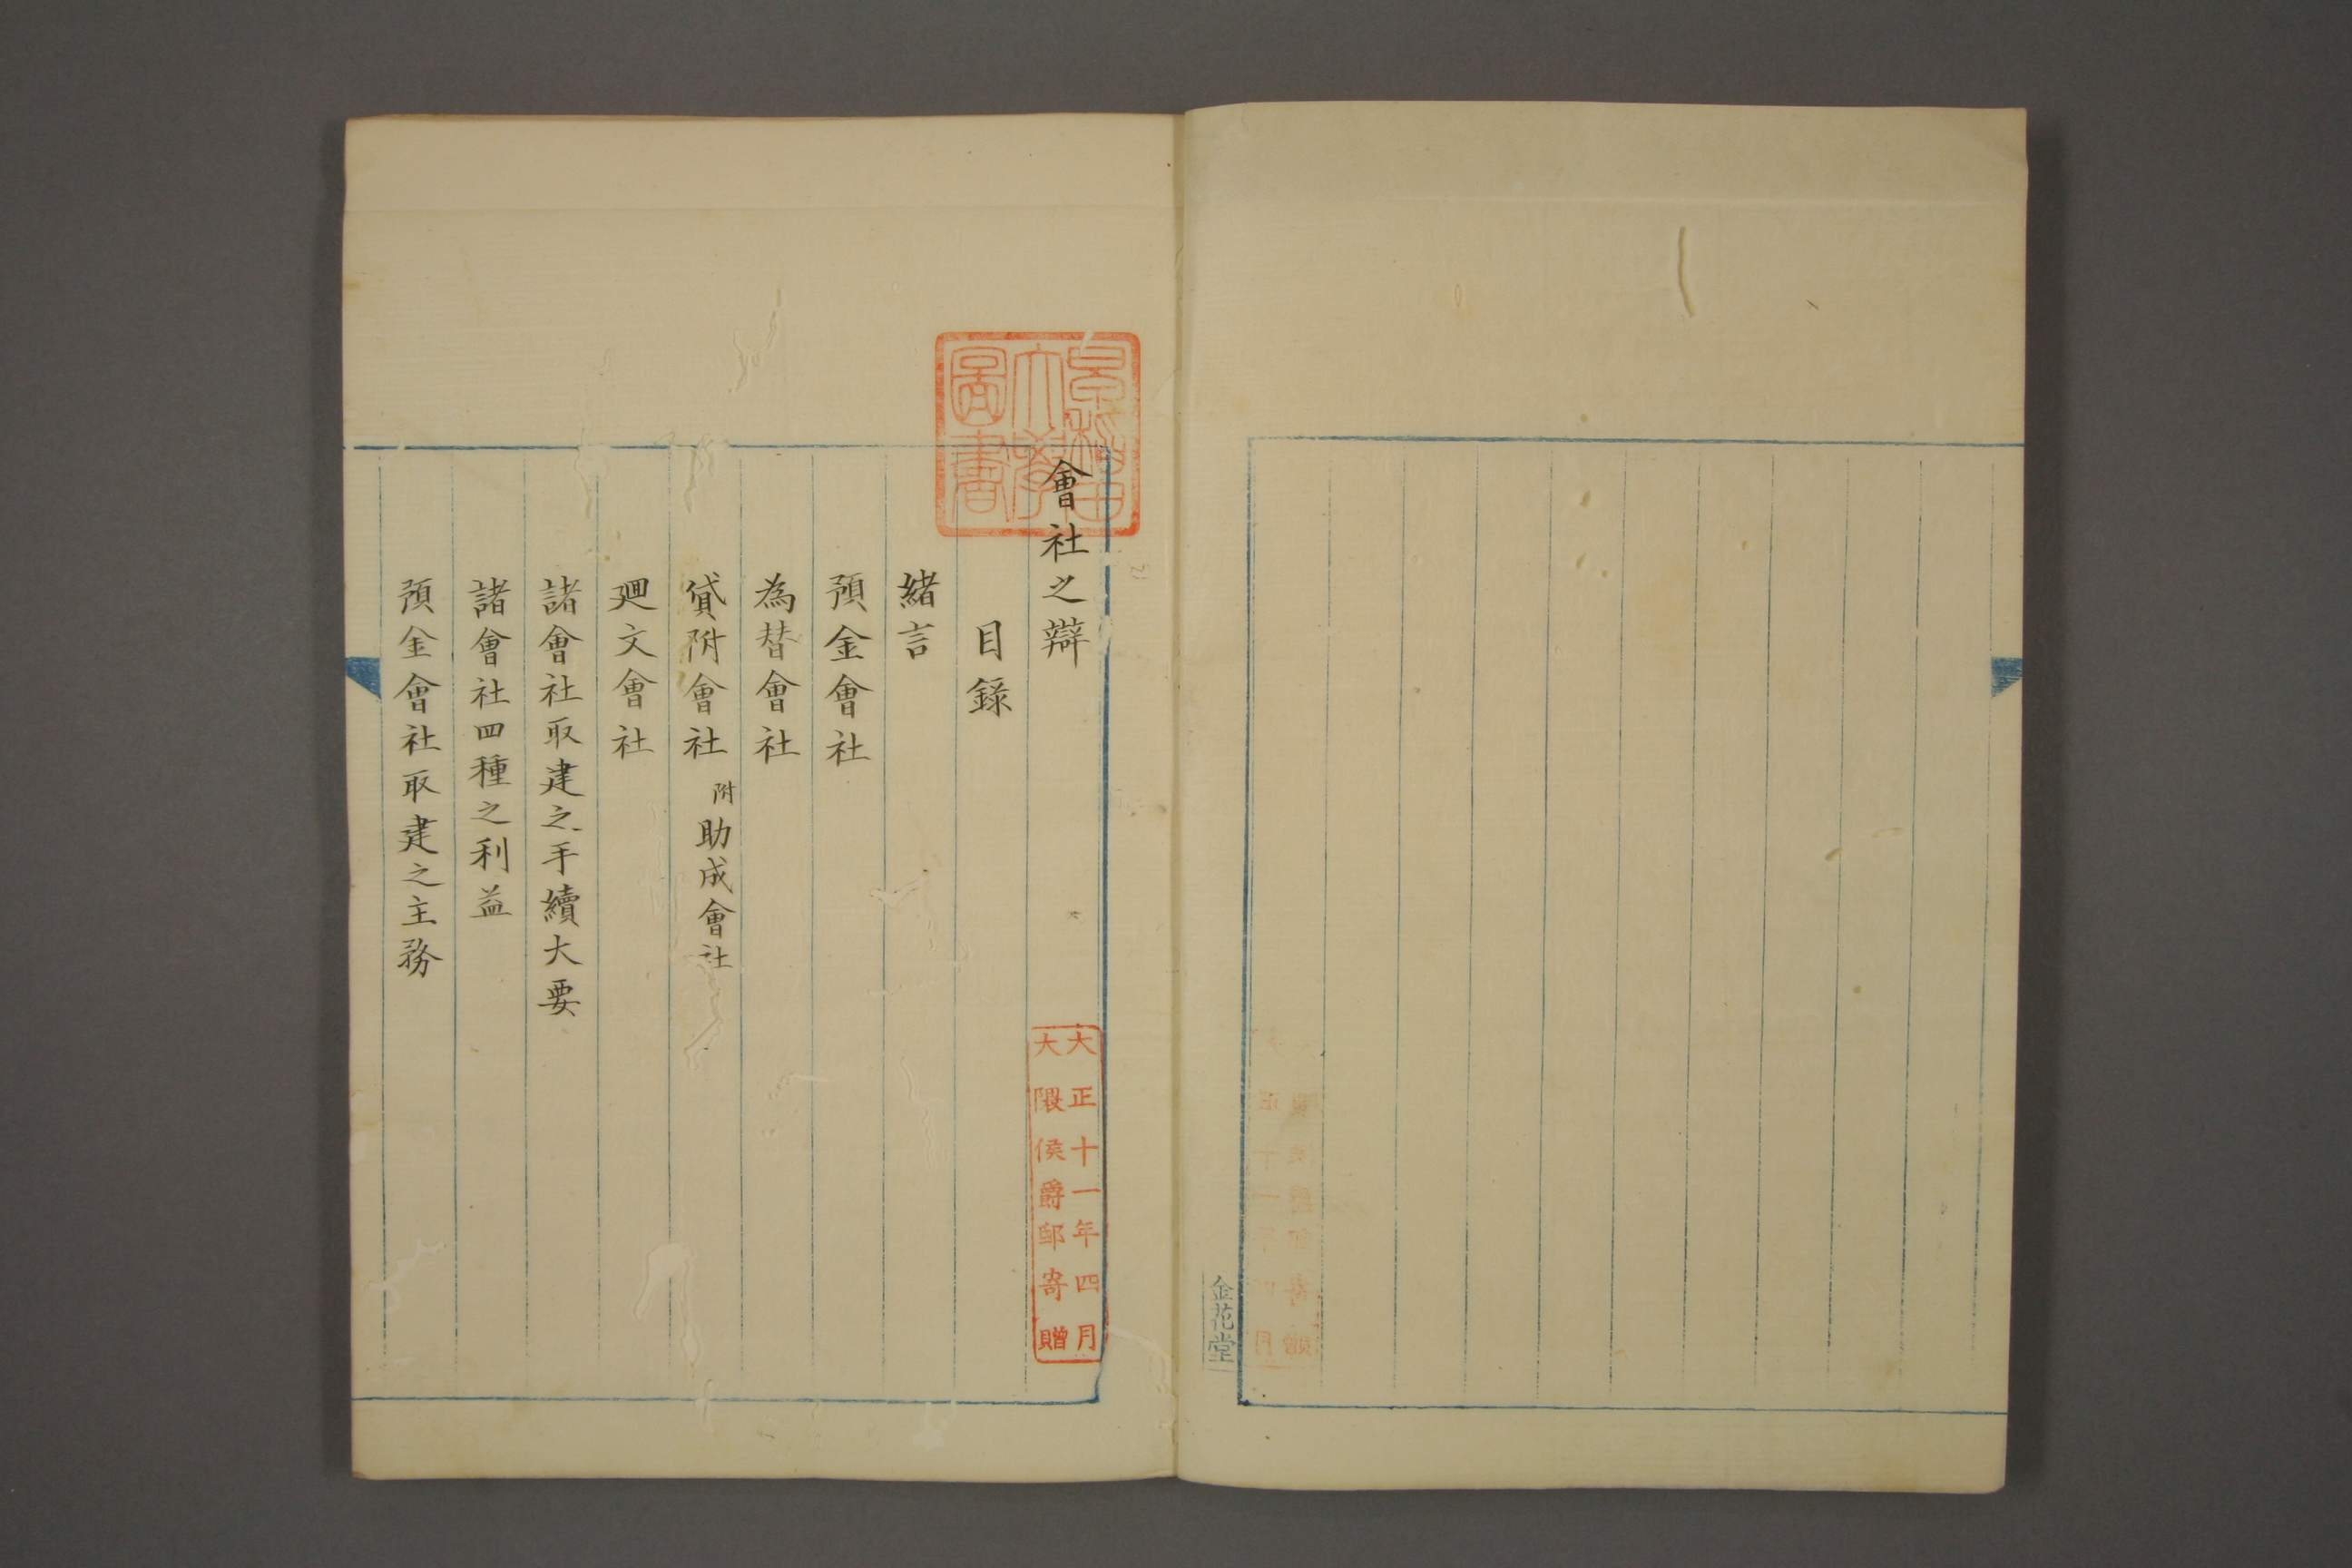 金花堂
早稲田
大學
圖書
會社之辯
大正十一年四月
大隈侯爵邸寄贈
目錄
緒言
預金會社
為替會社
貸附會社 附助成會社
廻文會社
諸會社取建之手續大要
諸會社四種之利益
預金會社取建之主務